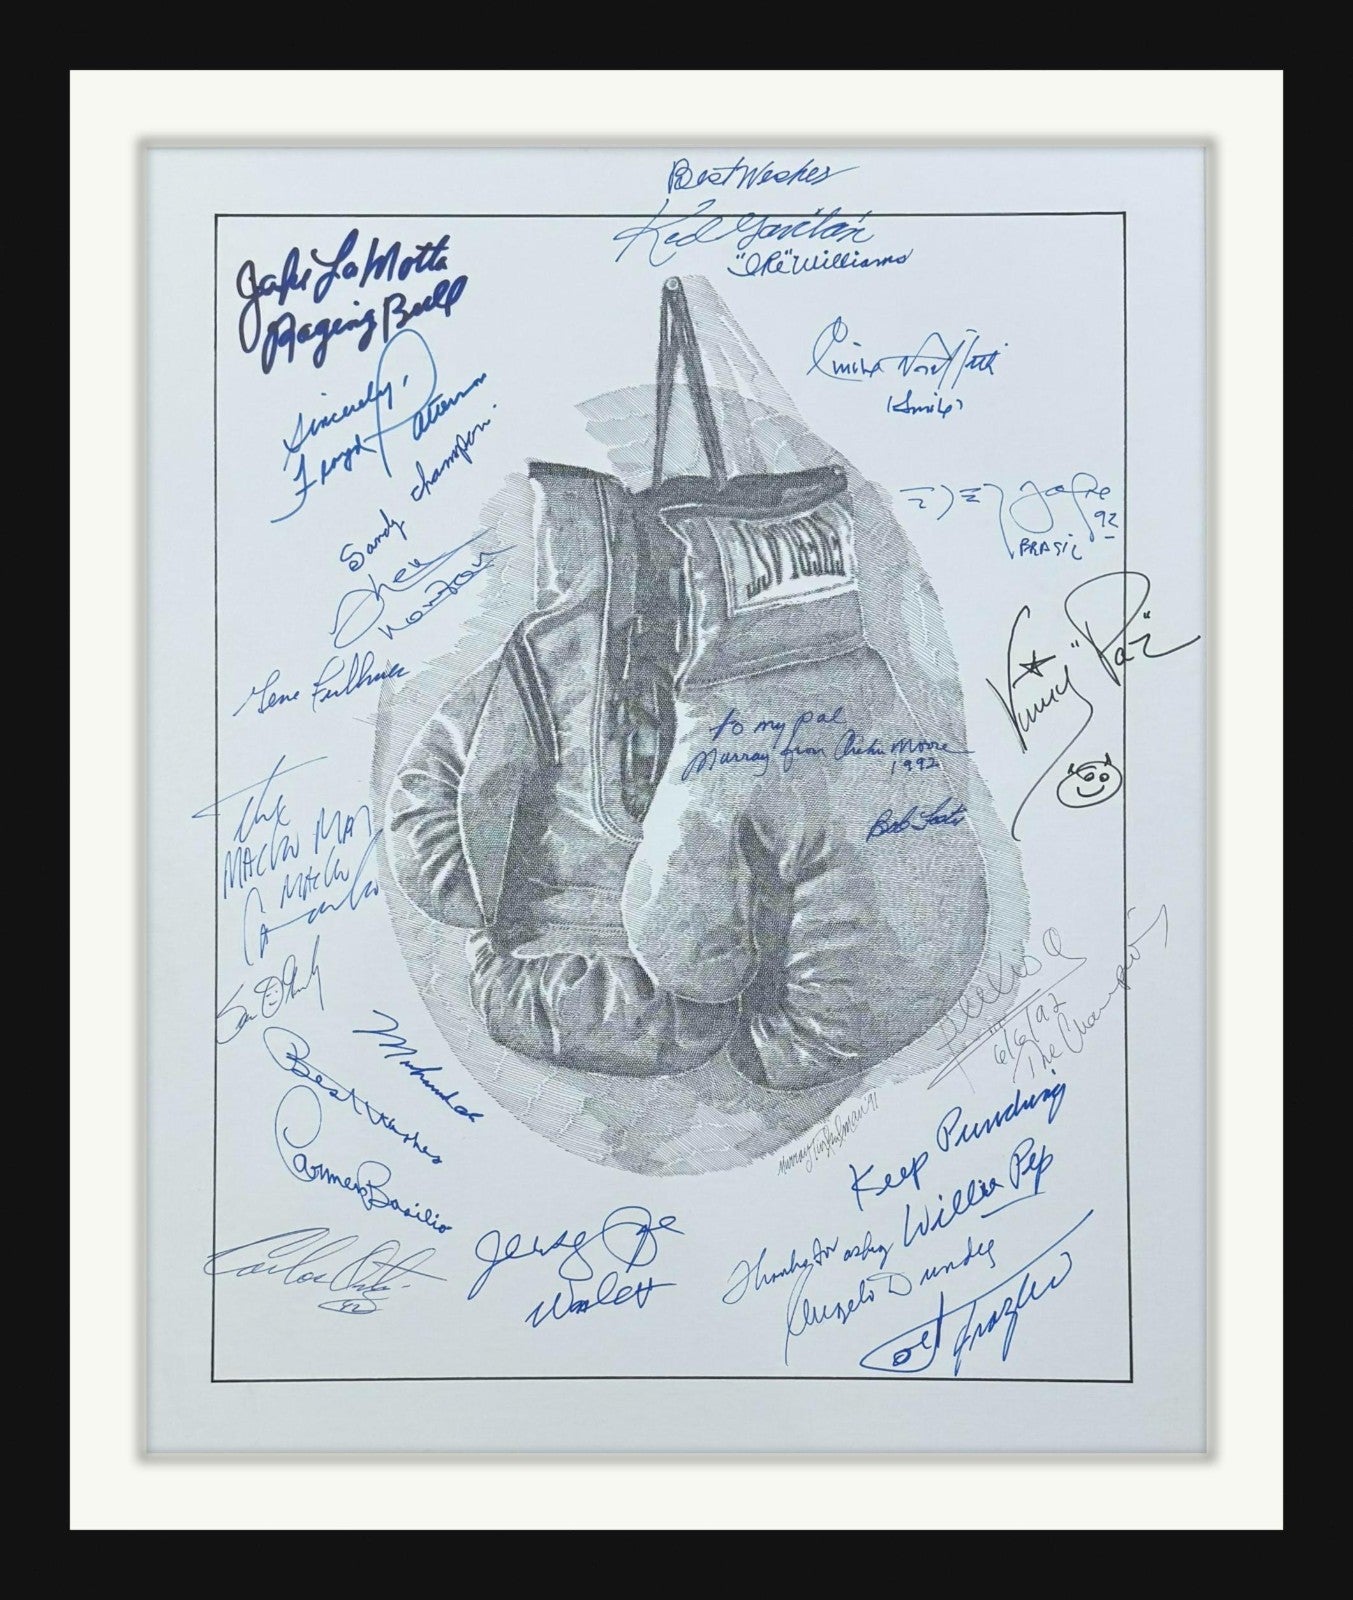 Best Wishes
Kid Gavilán
"Ike" Williams
Jake LaMotta
Raging Bull
Sincerely,
Floyd Patterson
Sandy
champion.
Ken
Norton
Gene Fullmer
The
MACHO MAN
MACHO
Camacho
Best Wishes
Carmen Basilio
Carlos Ortiz
Jersey Joe
Walcott
Emile
(Smile)
Jofre
92
BRASIL
Vinny "Paz"
EVERLAST
to my pal
Murray from Archie Moore
1992
Bob Foster
6/6/92
The Champ
Murray Tinkelman '91
Keep Punching
Willie Pep
Thanks for asking
Angelo Dundee
Joe Frazier